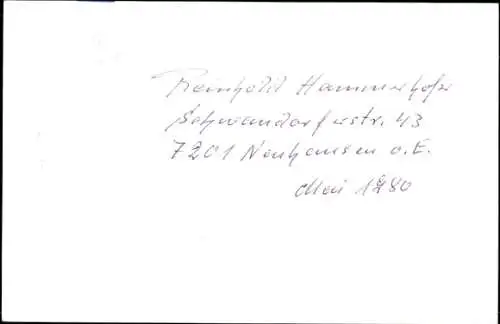 Reinhold Hammerhofer
Schwandorferstr. 43
7201 Neuhausen o. E.
Mai 1980